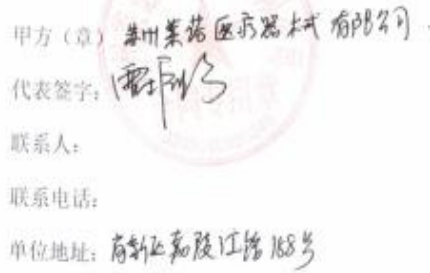 甲方（章）苏州莱诺医疗器械有限公司
代表签字：
联系人：
联系电话：
单位地址：高新区嘉陵江路168号